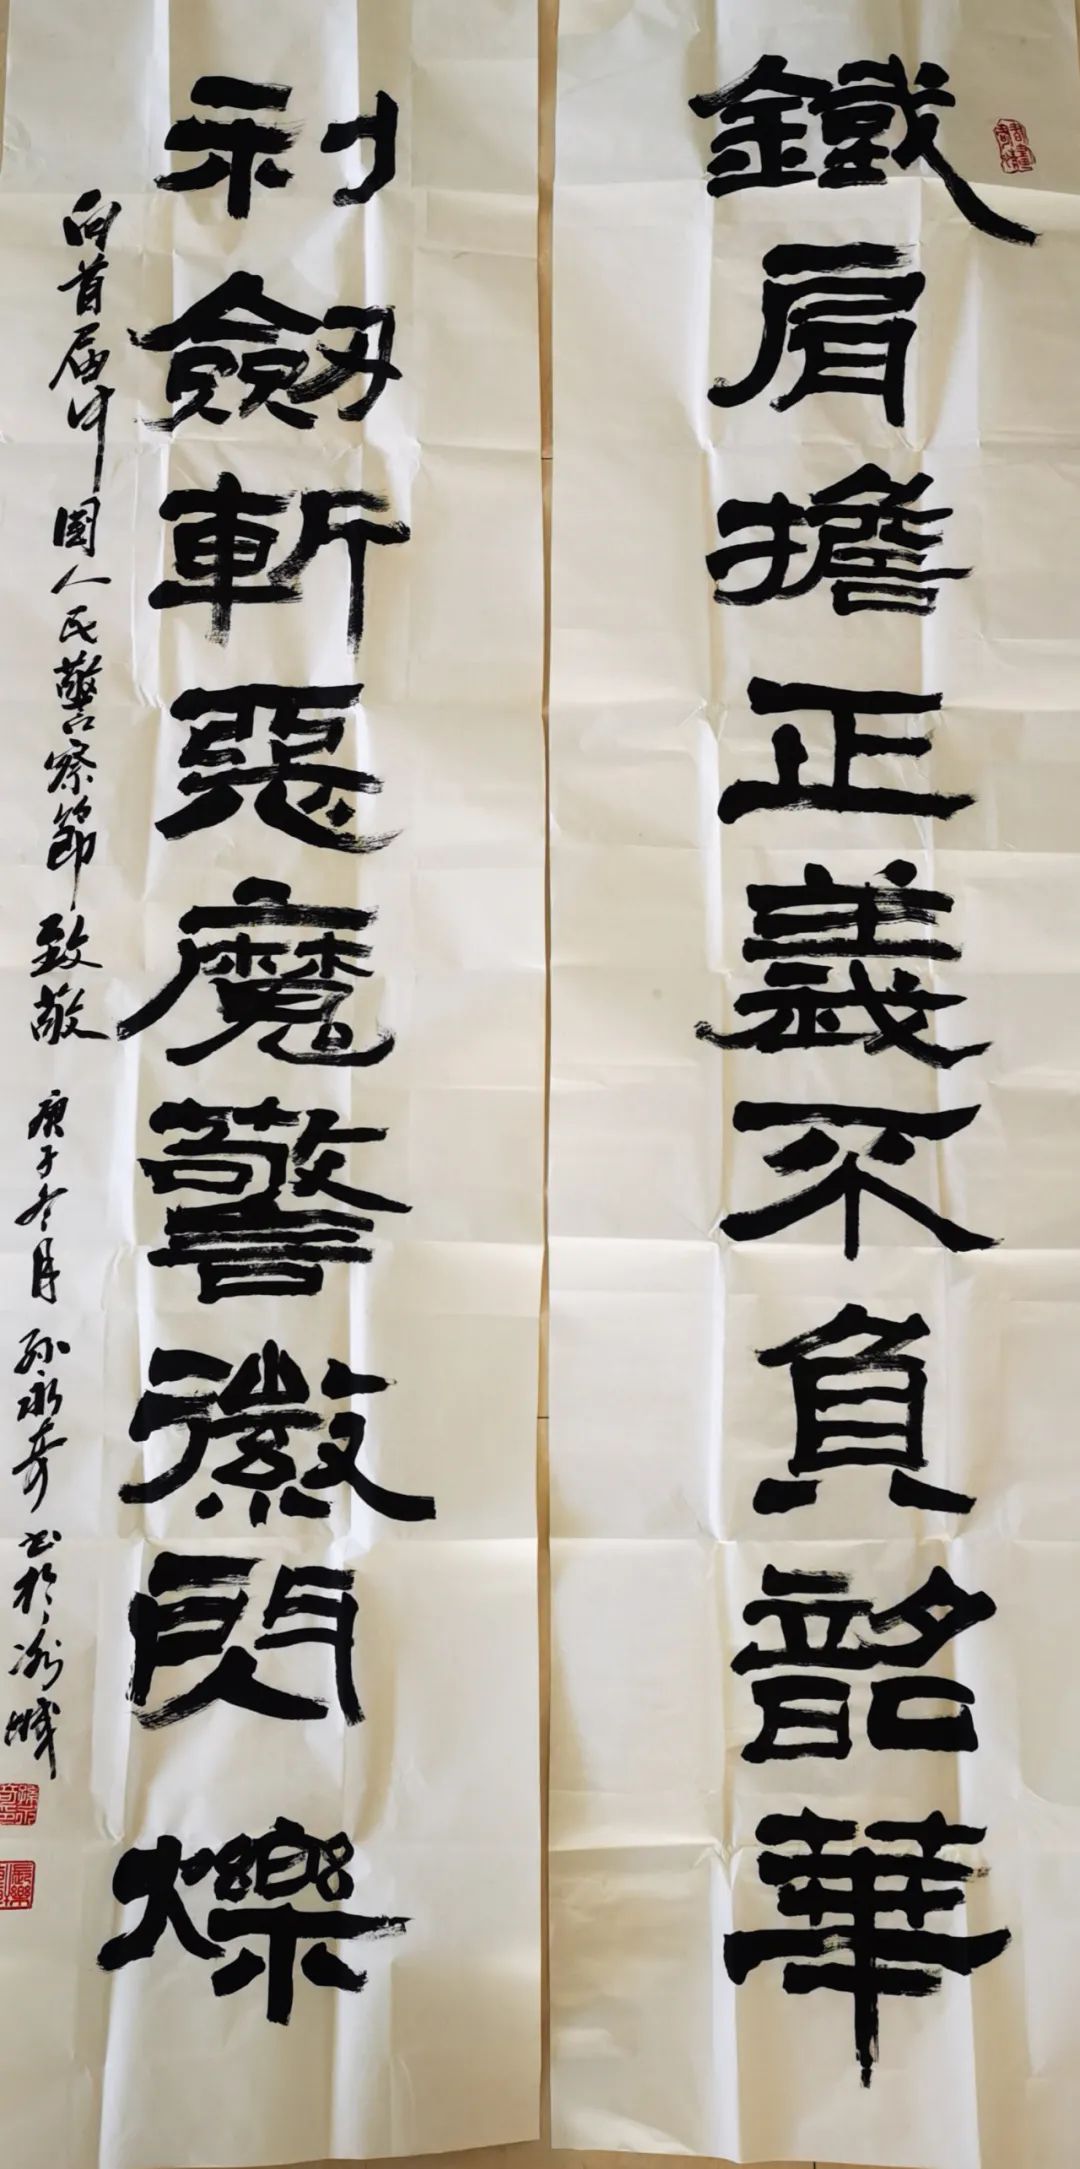 鐵肩擔正義不負韶華
利劔斬惡魔警徽閃爍
向首届中國人民警察節致敬 庚子冬月 孙永奇书於冰城